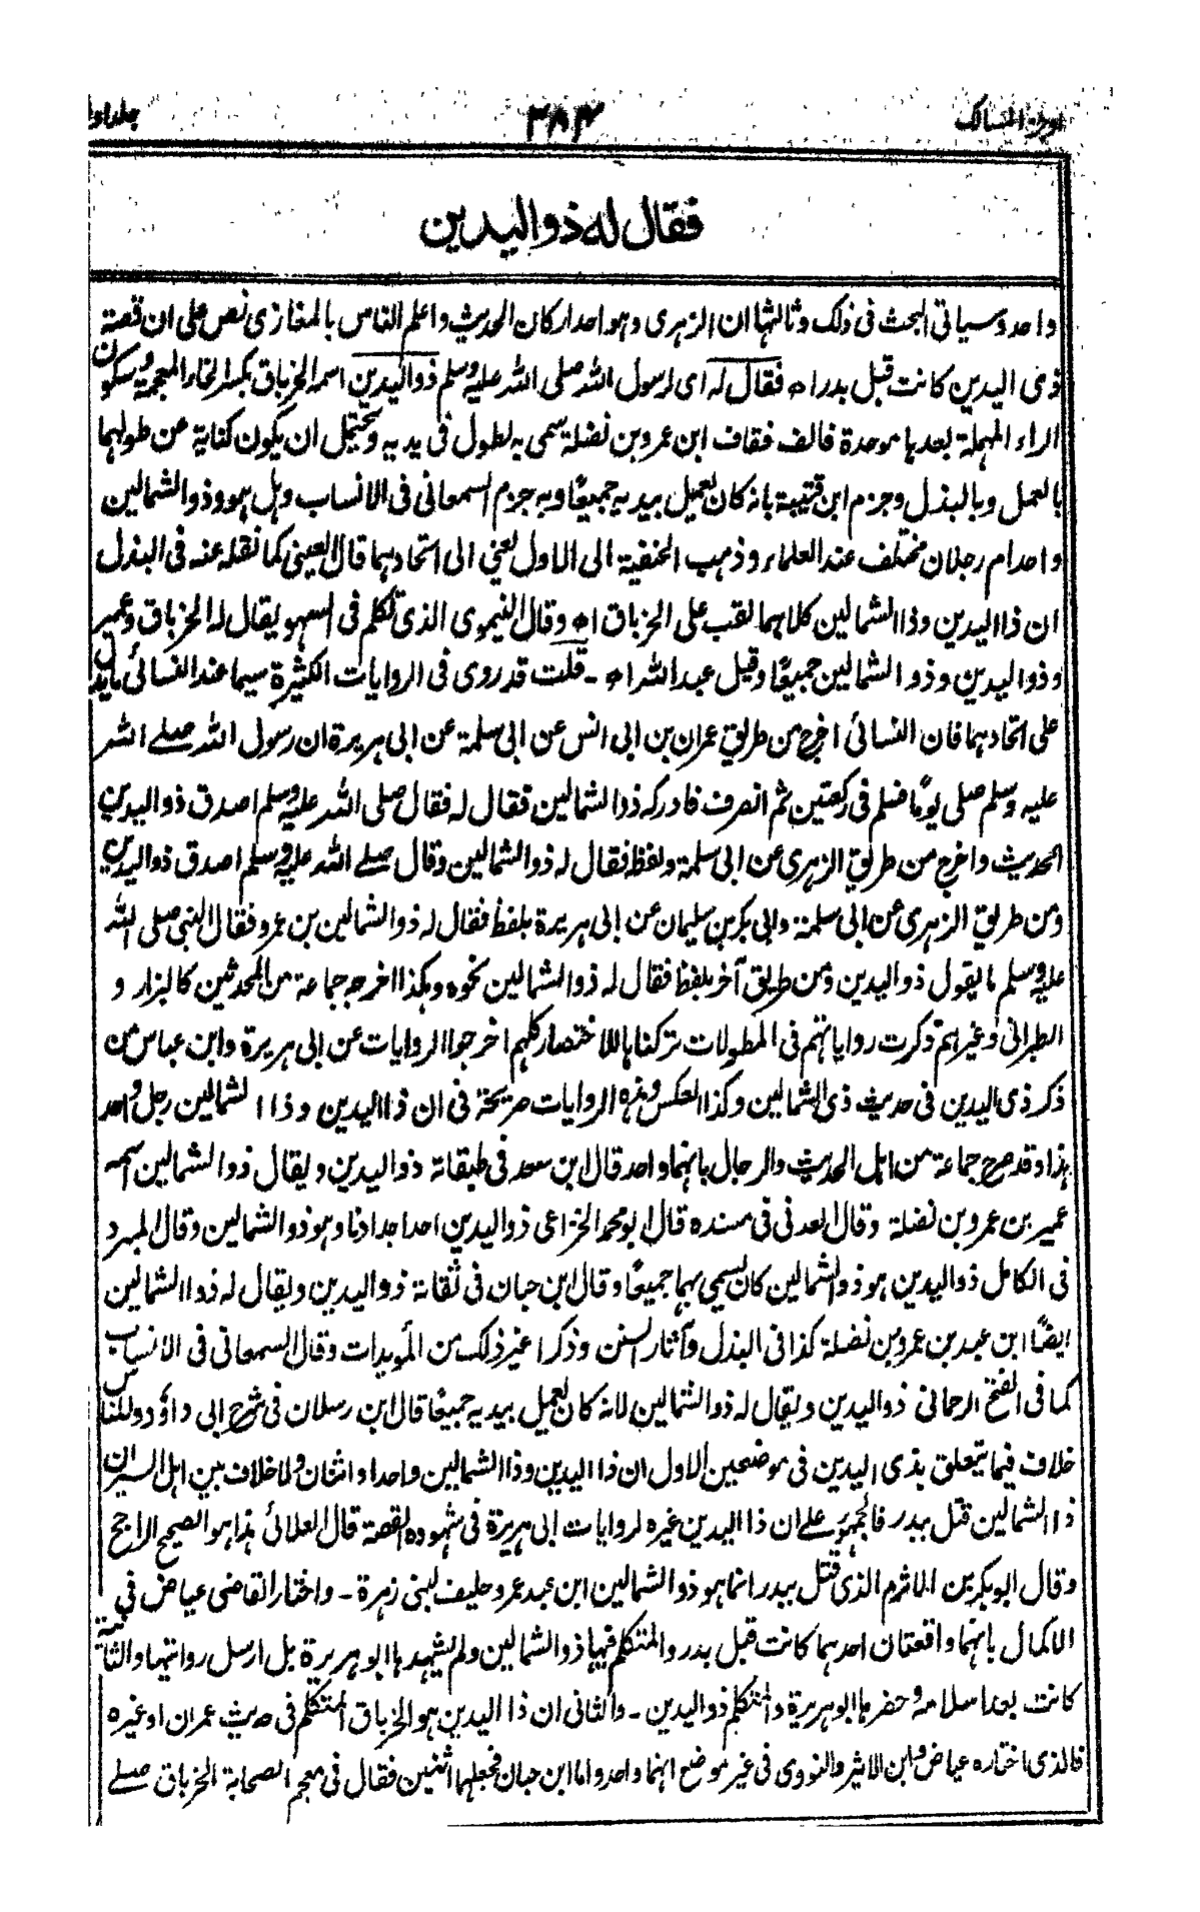 اوجز المسالك ۳۸۴ جلد اول
فقال له ذو اليدين
واحد وسياتى البحث فى ذلك وثالثها ان الزهرى وهو احد اركان الحديث واعلم الناس بالمغازى نص على ان قصة
ذى اليدين كانت قبل بدر اه فقال له اى لرسول الله صلى الله عليه وسلم ذو اليدين اسمه الخرباق بكسر الخاء المعجمة وسكون
الراء المهملة بعدها موحدة فالف فقاف ابن عمرو بن نضلة سمى به لطول فى يديه ويحتمل ان يكون كناية عن طولهما
بالعمل وبالبذل وجزم ابن قتيبة بانه كان يعمل بيديه جميعًا وبه جزم السمعانى فى الانساب وهل هو وذو الشمالين
واحد ام رجلان مختلف عند العلماء وذهب الحنفية الى الاول يعنى الى اتحادهما قال العينى كما نقله عنه فى البذل
ان ذا اليدين وذا الشمالين كلاهما لقب على الخرباق اه وقال النيموى الذى تكلم فى السهو يقال له الخرباق وعمير
وذو اليدين وذو الشمالين جميعًا وقيل عبد الله اه ـ قلت قد روى فى الروايات الكثيرة سيما عند النسائى ما يدل
على اتحادهما فان النسائى اخرج من طريق عمران بن ابى انس عن ابى سلمة عن ابى هريرة ان رسول الله صلے الله
عليه وسلم صلى يومًا فسلم فى ركعتين ثم انصرف فادركه ذو الشمالين فقال له فقال صلى الله عليه وسلم اصدق ذو اليدين
الحديث واخرج من طريق الزهرى عن ابى سلمة ولفظه فقال له ذو الشمالين وقال صلے الله عليه وسلم اصدق ذو اليدين
ومن طريق الزهرى عن ابى سلمة وابى بكر بن سليمان عن ابى هريرة بلفظ فقال له ذو الشمالين بن عمرو فقال النبى صلى الله
عليه وسلم ما يقول ذو اليدين ومن طريق آخر بلفظ فقال له ذو الشمالين نحوه وهكذا اخرجه جماعة من المحدثين كالبزار و
الطبرانى وغيرهم ذكرت رواياتهم فى المطولات تركناها للاختصار كلهم اخرجوا الروايات عن ابى هريرة وابن عباس من
ذكر ذى اليدين فى حديث ذى الشمالين وكذا العكس وهذه الروايات صريحة فى ان ذا اليدين وذا الشمالين رجل واحد
هذا وقد صرح جماعة من اهل الحديث والرجال بانهما واحد قال ابن سعد فى طبقاته ذو اليدين ويقال ذو الشمالين اسمه
عمير بن عمرو بن نضلة وقال العدنى فى مسنده قال ابو محمد الخزاعى ذو اليدين احد اجدادنا وهو ذو الشمالين وقال المبرد
فى الكامل ذو اليدين هو ذو الشمالين كان يسمى بهما جميعًا وقال ابن حبان فى ثقاته ذو اليدين ويقال له ذو الشمالين
ايضًا ابن عبد بن عمرو بن نضلة كذا فى البذل وآثار السنن وذكرا غير ذلك من المؤيدات وقال السمعانى فى الانساب
كما فى الفتح الرحمانى ذو اليدين ويقال له ذو الشمالين لانه كان يعمل بيديه جميعًا قال ابن رسلان فى شرح ابى داؤد وللناس
خلاف فيما يتعلق بذى اليدين فى موضعين الاول ان ذا اليدين وذا الشمالين واحد او اثنان ولا خلاف بين اهل السير ان
ذا الشمالين قتل ببدر فالجمهور على ان ذا اليدين غيره لروايات ابى هريرة فى شهوده القصة قال العلائى هذا هو الصحيح الراجح
وقال ابو بكر بن الاثرم الذى قتل ببدر انما هو ذو الشمالين ابن عبد عمرو حليف لبنى زهرة ـ واختار القاضى عياض فى
الاكمال بانهما واقعتان احدهما كانت قبل بدر والمتكلم فيها ذو الشمالين ولم يشهدها ابو هريرة بل ارسل روايتها والثانية
كانت بعد اسلامه وحضرها ابو هريرة والمتكلم ذو اليدين ـ والثانى ان ذا اليدين هو الخرباق المتكلم فى حديث عمران او غيره
فالذى اختاره عياض وابن الاثير والنووى فى غير موضع انهما واحد واما ابن حبان فجعلهما اثنين فقال فى معجم الصحابة الخرباق صلے